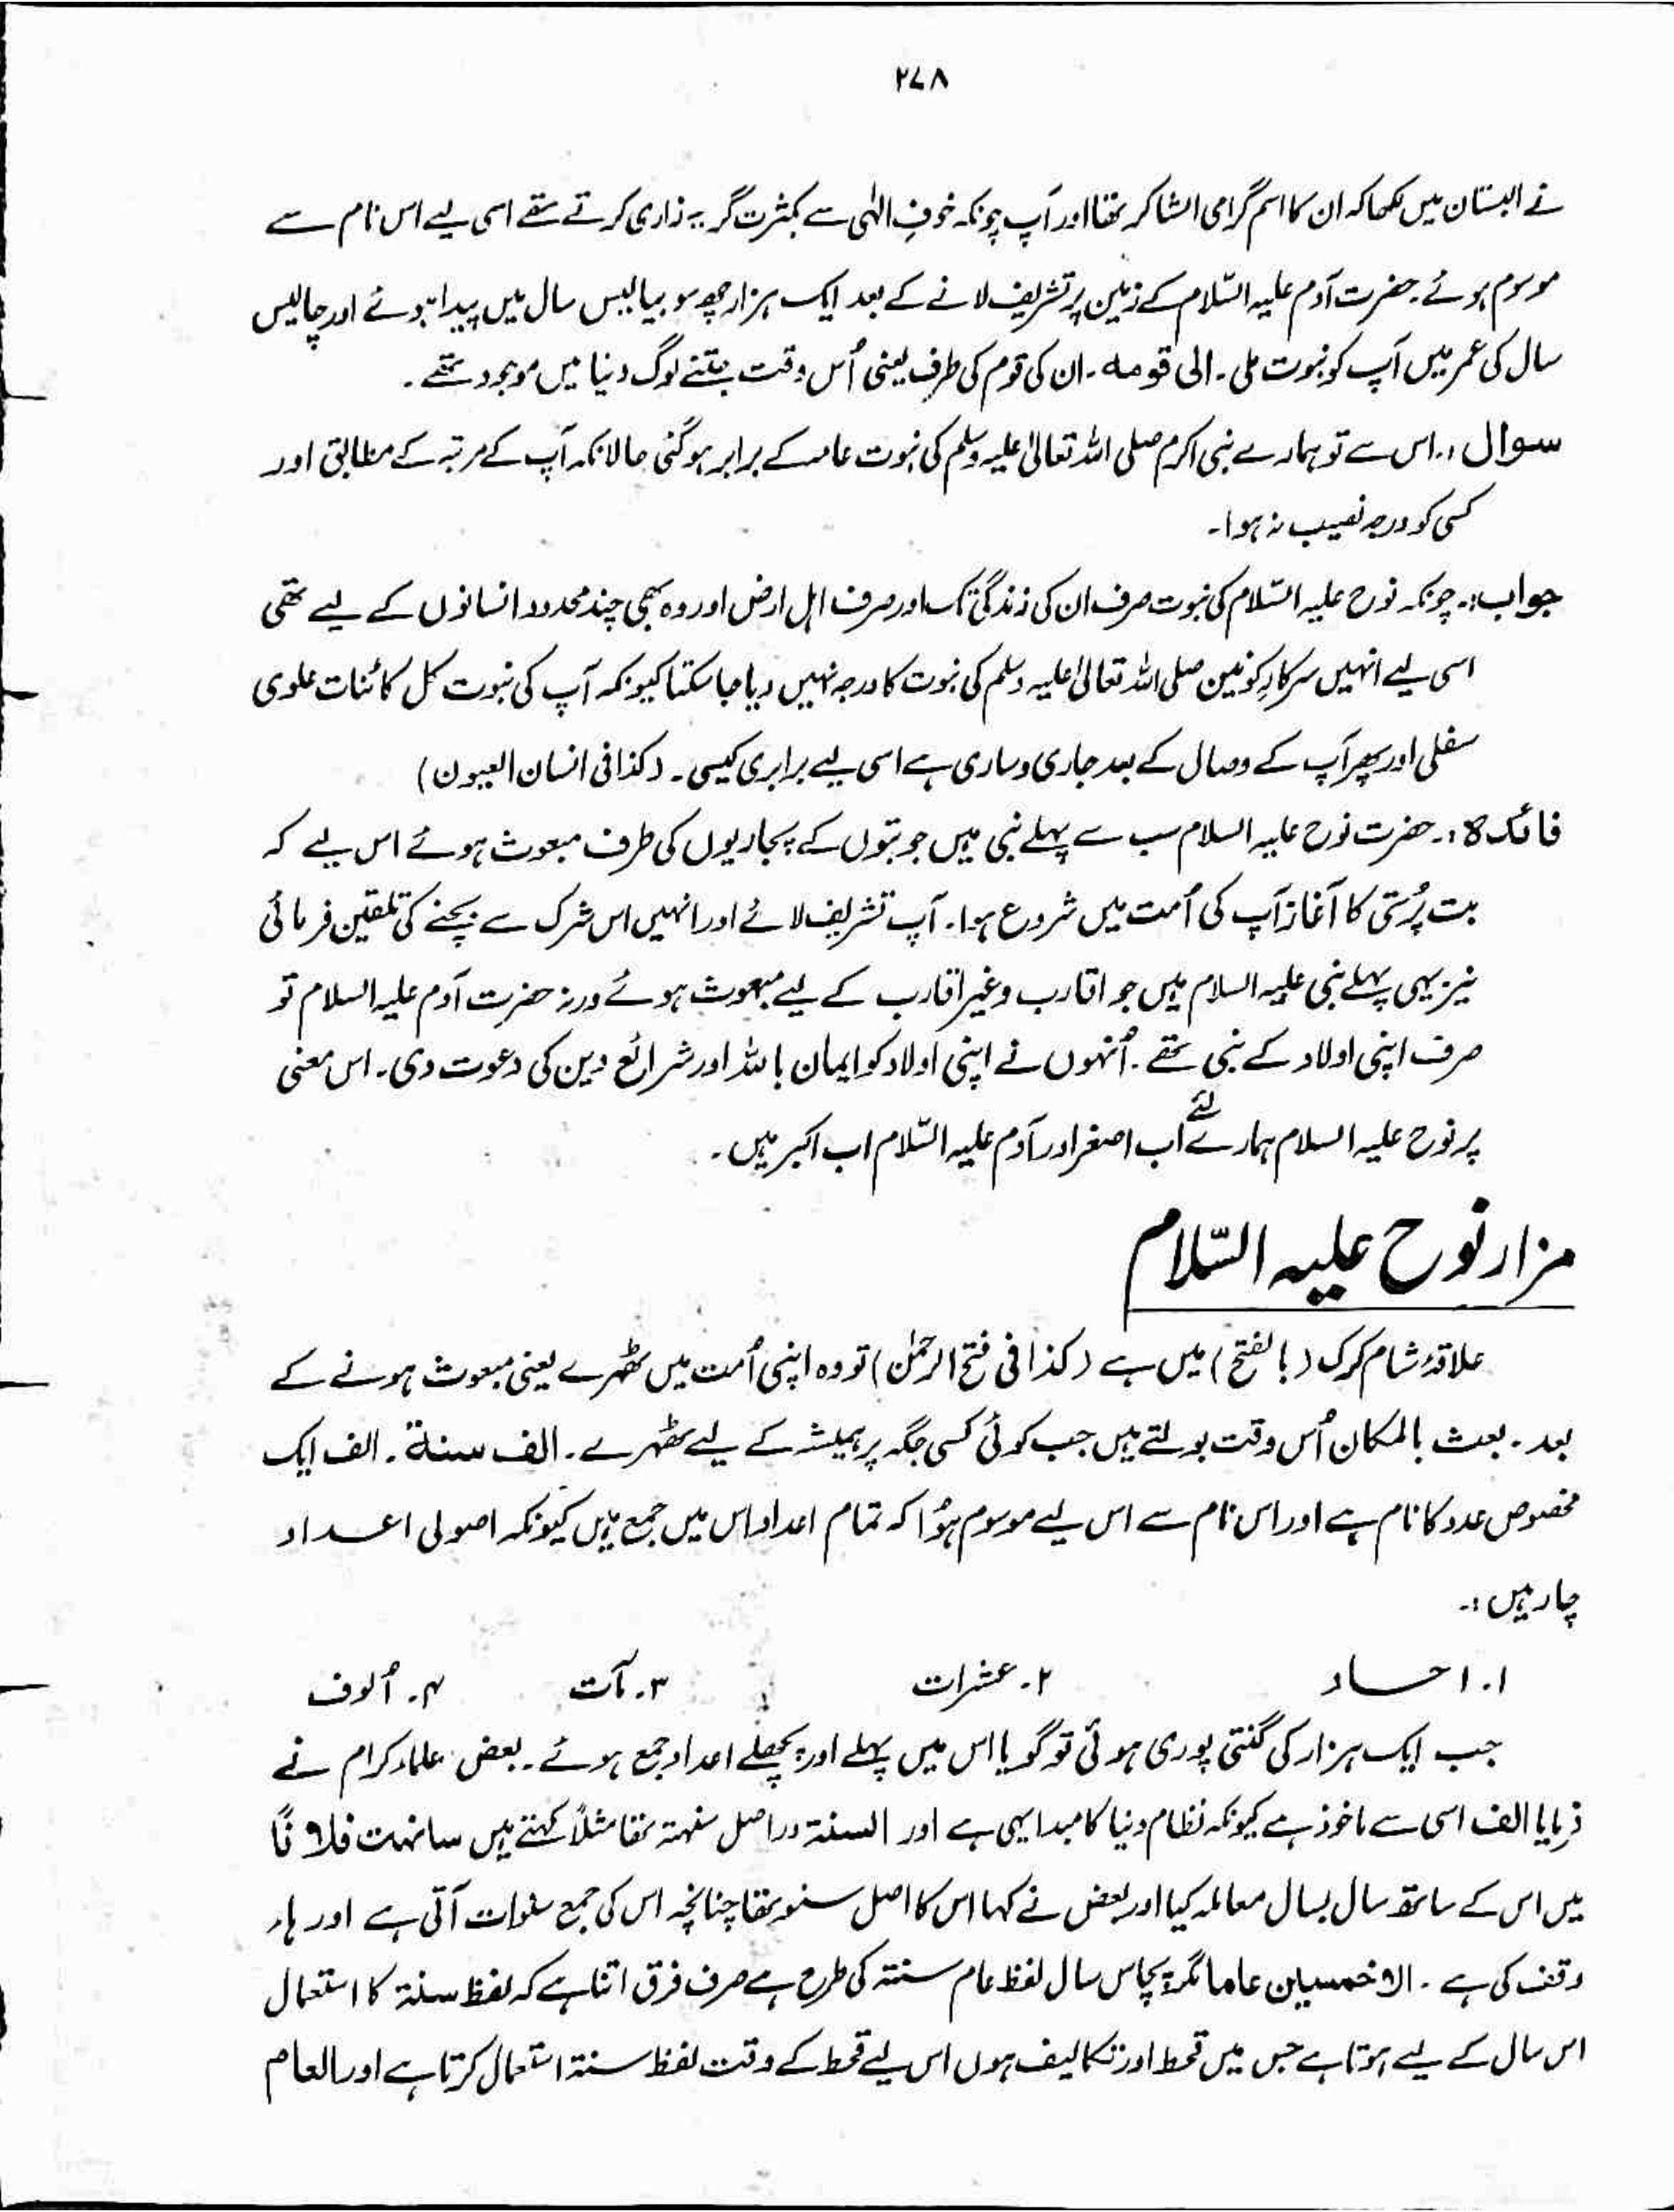 ۲۷۸
نے البستان میں لکھا کہ ان کا اسم گرامی الشاکر تھا اور آپ چونکہ خوفِ الٰہی سے بکثرت گریہ زاری کرتے تھے اسی لیے اس نام سے
موسوم ہوئے۔ حضرت آدم علیہ السّلام کے زمین پر تشریف لانے کے بعد ایک ہزار چھ سو بیالیس سال میں پیدا ہوئے اور چالیس
سال کی عمر میں آپ کو نبوت ملی۔ الی قومه۔ ان کی قوم کی طرف یعنی اُس وقت جتنے لوگ دنیا میں موجود تھے۔
سوال :۔ اس سے تو ہمارے نبی اکرم صلی اللہ تعالیٰ علیہ وسلم کی نبوت عامہ کے برابر ہو گئی حالانکہ آپ کے مرتبہ کے مطابق اور
کسی کو درجہ نصیب نہ ہوا۔
جواب :۔ چونکہ نوح علیہ السّلام کی نبوت صرف ان کی زندگی تک اور صرف اہل ارض اور وہ بھی چند محدود انسانوں کے لیے تھی
اسی لیے انہیں سرکارِ کونین صلی اللہ تعالیٰ علیہ وسلم کی نبوت کا درجہ نہیں دیا جا سکتا کیونکہ آپ کی نبوت کل کائنات علوی
سفلی اور پھر آپ کے وصال کے بعد جاری و ساری ہے اسی لیے برابری کیسی۔ (کذا فی انسان العیون)
فائدہ :۔ حضرت نوح علیہ السلام سب سے پہلے نبی ہیں جو بتوں کے پجاریوں کی طرف مبعوث ہوئے اس لیے کہ
بت پُرستی کا آغاز آپ کی اُمت میں شروع ہوا۔ آپ تشریف لائے اور انہیں اس شرک سے بچنے کی تلقین فرمائی
نیز یہی پہلے نبی علیہ السلام ہیں جو اقارب و غیر اقارب کے لیے مبعوث ہوئے ورنہ حضرت آدم علیہ السلام تو
صرف اپنی اولاد کے نبی تھے۔ اُنہوں نے اپنی اولاد کو ایمان باللہ اور شرائع دین کی دعوت دی۔ اس معنی
پر نوح علیہ السلام ہمارے لئے اب اصغر اور آدم علیہ السّلام اب اکبر ہیں۔
مزار نوح علیہ السّلام
علاقۂ شام کرک (بالفتح) میں ہے (کذا فی فتح الرحمٰن) تو وہ اپنی اُمت میں ٹھہرے یعنی مبعوث ہونے کے
بعد۔ بعث بالمکان اُس وقت بولتے ہیں جب کوئی کسی جگہ پر ہمیشہ کے لیے ٹھہرے۔ الف سنة۔ الف ایک
مخصوص عدد کا نام ہے اور اس نام سے اس لیے موسوم ہؤا کہ تمام اعداد اس میں جمع ہیں کیونکہ اصولی اعداد
چار ہیں :۔
۱۔ احاد ۲۔ عشرات ۳۔ مآت ۴۔ اُلوف
جب ایک ہزار کی گنتی پوری ہوئی تو گویا اس میں پہلے اور پچھلے اعداد جمع ہوئے۔ بعض علماء کرام نے
فرمایا الف اسی سے ماخوذ ہے کیونکہ نظام دنیا کا مبدا یہی ہے اور السنة دراصل سنہة تھا مثلاً کہتے ہیں سانہت فلاناً
میں اس کے ساتھ سال بسال معاملہ کیا اور بعض نے کہا اس کا اصل سنو تھا چنانچہ اس کی جمع سنوات آتی ہے اور ہاء
وقف کی ہے۔ الا خمسین عاما مگر پچاس سال لفظ عام سنتہ کی طرح ہے صرف فرق اتنا ہے کہ لفظ سنة کا استعمال
اس سال کے لیے ہوتا ہے جس میں قحط اور تکالیف ہوں اس لیے قحط کے وقت لفظ سنة استعمال کرتا ہے اور العام